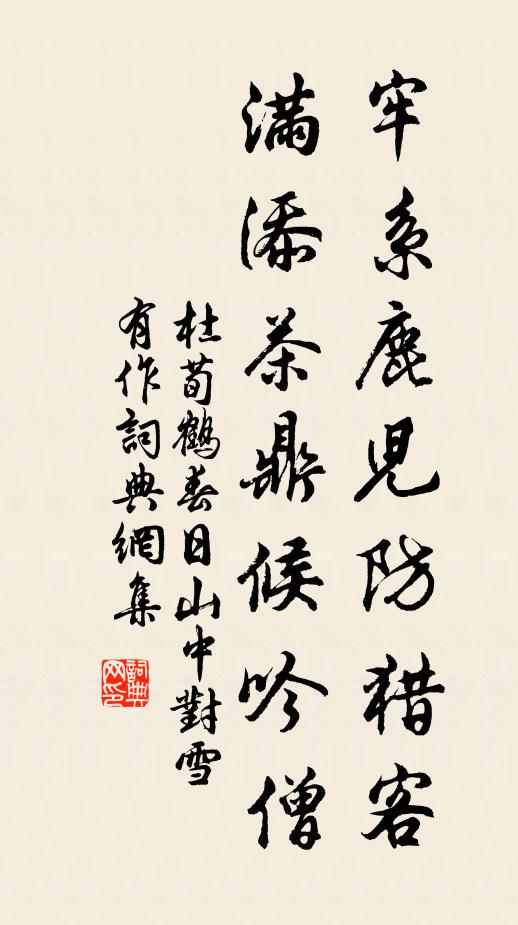 牢系鹿児防猎客
满添茶鼎候吟僧
杜荀鶴春日山中對雪
有作詞典網集
詞典网印